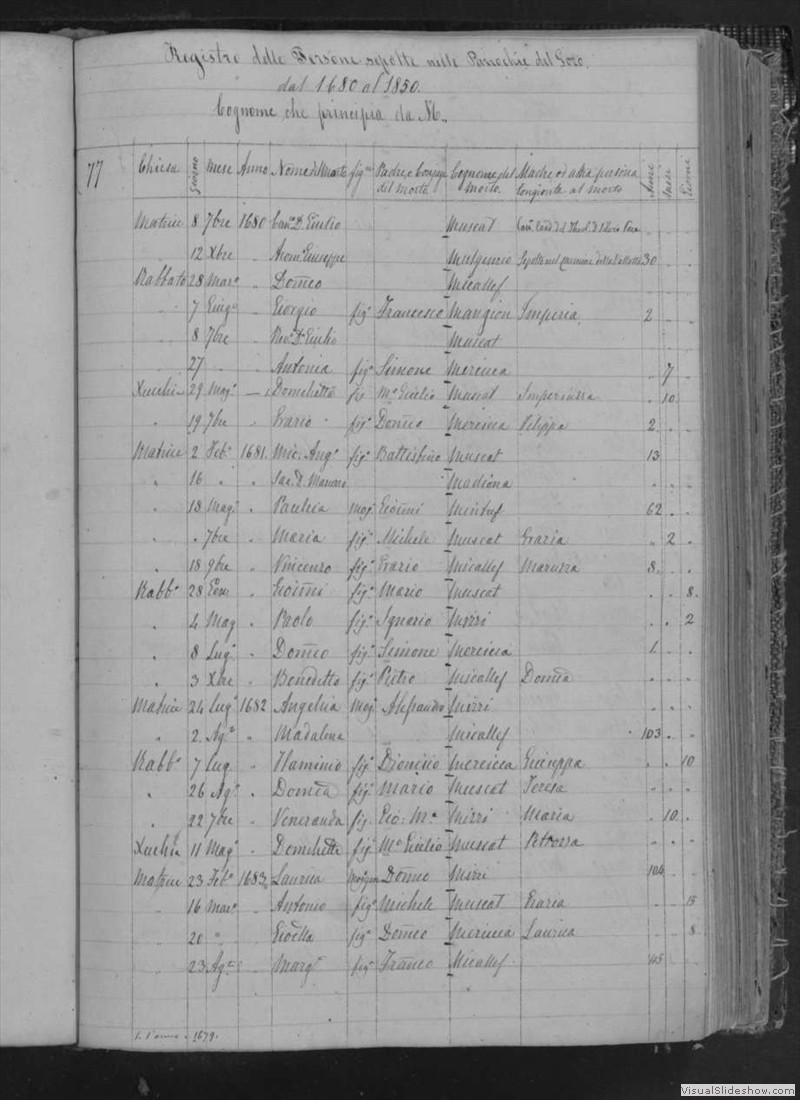 Registro delle Persone sepolte nelle Parrochie del Gozo.
dal 1680 al 1850.
Cognome che principia da M.
77 Chiesa Giorno Mese Anno Nome del Morto fig. Padre o Conjuge del morto Cognome del morto. Madre od altra persona congionta al morto Anni Mesi Giorni
Matrice 8 7bre 1680 Can.co D. Giulio Muscat
" 12 Xbre " Giuseppe 30
Rabbato 28 Mar.o " Domco Micallef
" 7 Giug.o " Giorgio fig.o Francesco Mangion Imperia 2
" 8 7bre " Rev.o D. Giulio Muscat
27 " " Antonia fig.a Simone Mercieca " 7
Xeuchia 29 Mag.o — Domchetta fig. M.o Giulio Muscat Imperiuzza " 10 "
" 19 7bre " Grazio fig.o Domco Mercieca Filippa 2 " "
Matrice 2 Feb.o 1681. Mic. Ang.o fig.o Battistino Muscat 13
" 16 " " Sac. D. Madiona " " "
" 18 Mag.o " Paulica mog. Gionni Mintuf 62 " "
" " 7bre " Maria fig.a Michele Muscat Grazia " 2 "
" 18 9bre " Vincenzo fig.o Grazio Micallef Maruzza 8 " "
Rabb.o 28 Gen. " Gionni fig.o Mario Muscat " " 8.
" 4 Mag. " Paolo fig.o Ignazio Mizzi " " 2
" 8 Lug.o " Domco fig.o Simone Mercieca 1. " "
" 3 Xbre " Benedetto fig.o Pietro Micallef Domca " " "
Matrice 24 Lug.o 1682 Angelica Mog. Alessandro Mizzi " " "
" 2. Ag.o " Madalena Micallef 103 " "
Rabb.o 7 Lug. " Flaminio fig. Dionisio Mercieca Giuseppa " " 10
" 26 Ag.o " Domca fig. Mario Muscat Teresa " " "
" 22 7bre " Veneranda fig. Gio: M.a Mizzi Maria " 10. "
Xeuchia 11 Mag.o " Domchetta fig. M.o Giulio Muscat " " "
Matrice 23 Feb.o 1683. Laurica Domco Mizzi 104 " "
" 16 Mar.o " Antonio fig.o Michele Muscat Grazia " " 15
" 20 " " fig.a Domco Mercieca Laurica " " 8
" 23 Ag.o " Marg.a fig.a Franco Micallef
1679.
VisualSlideshow.com